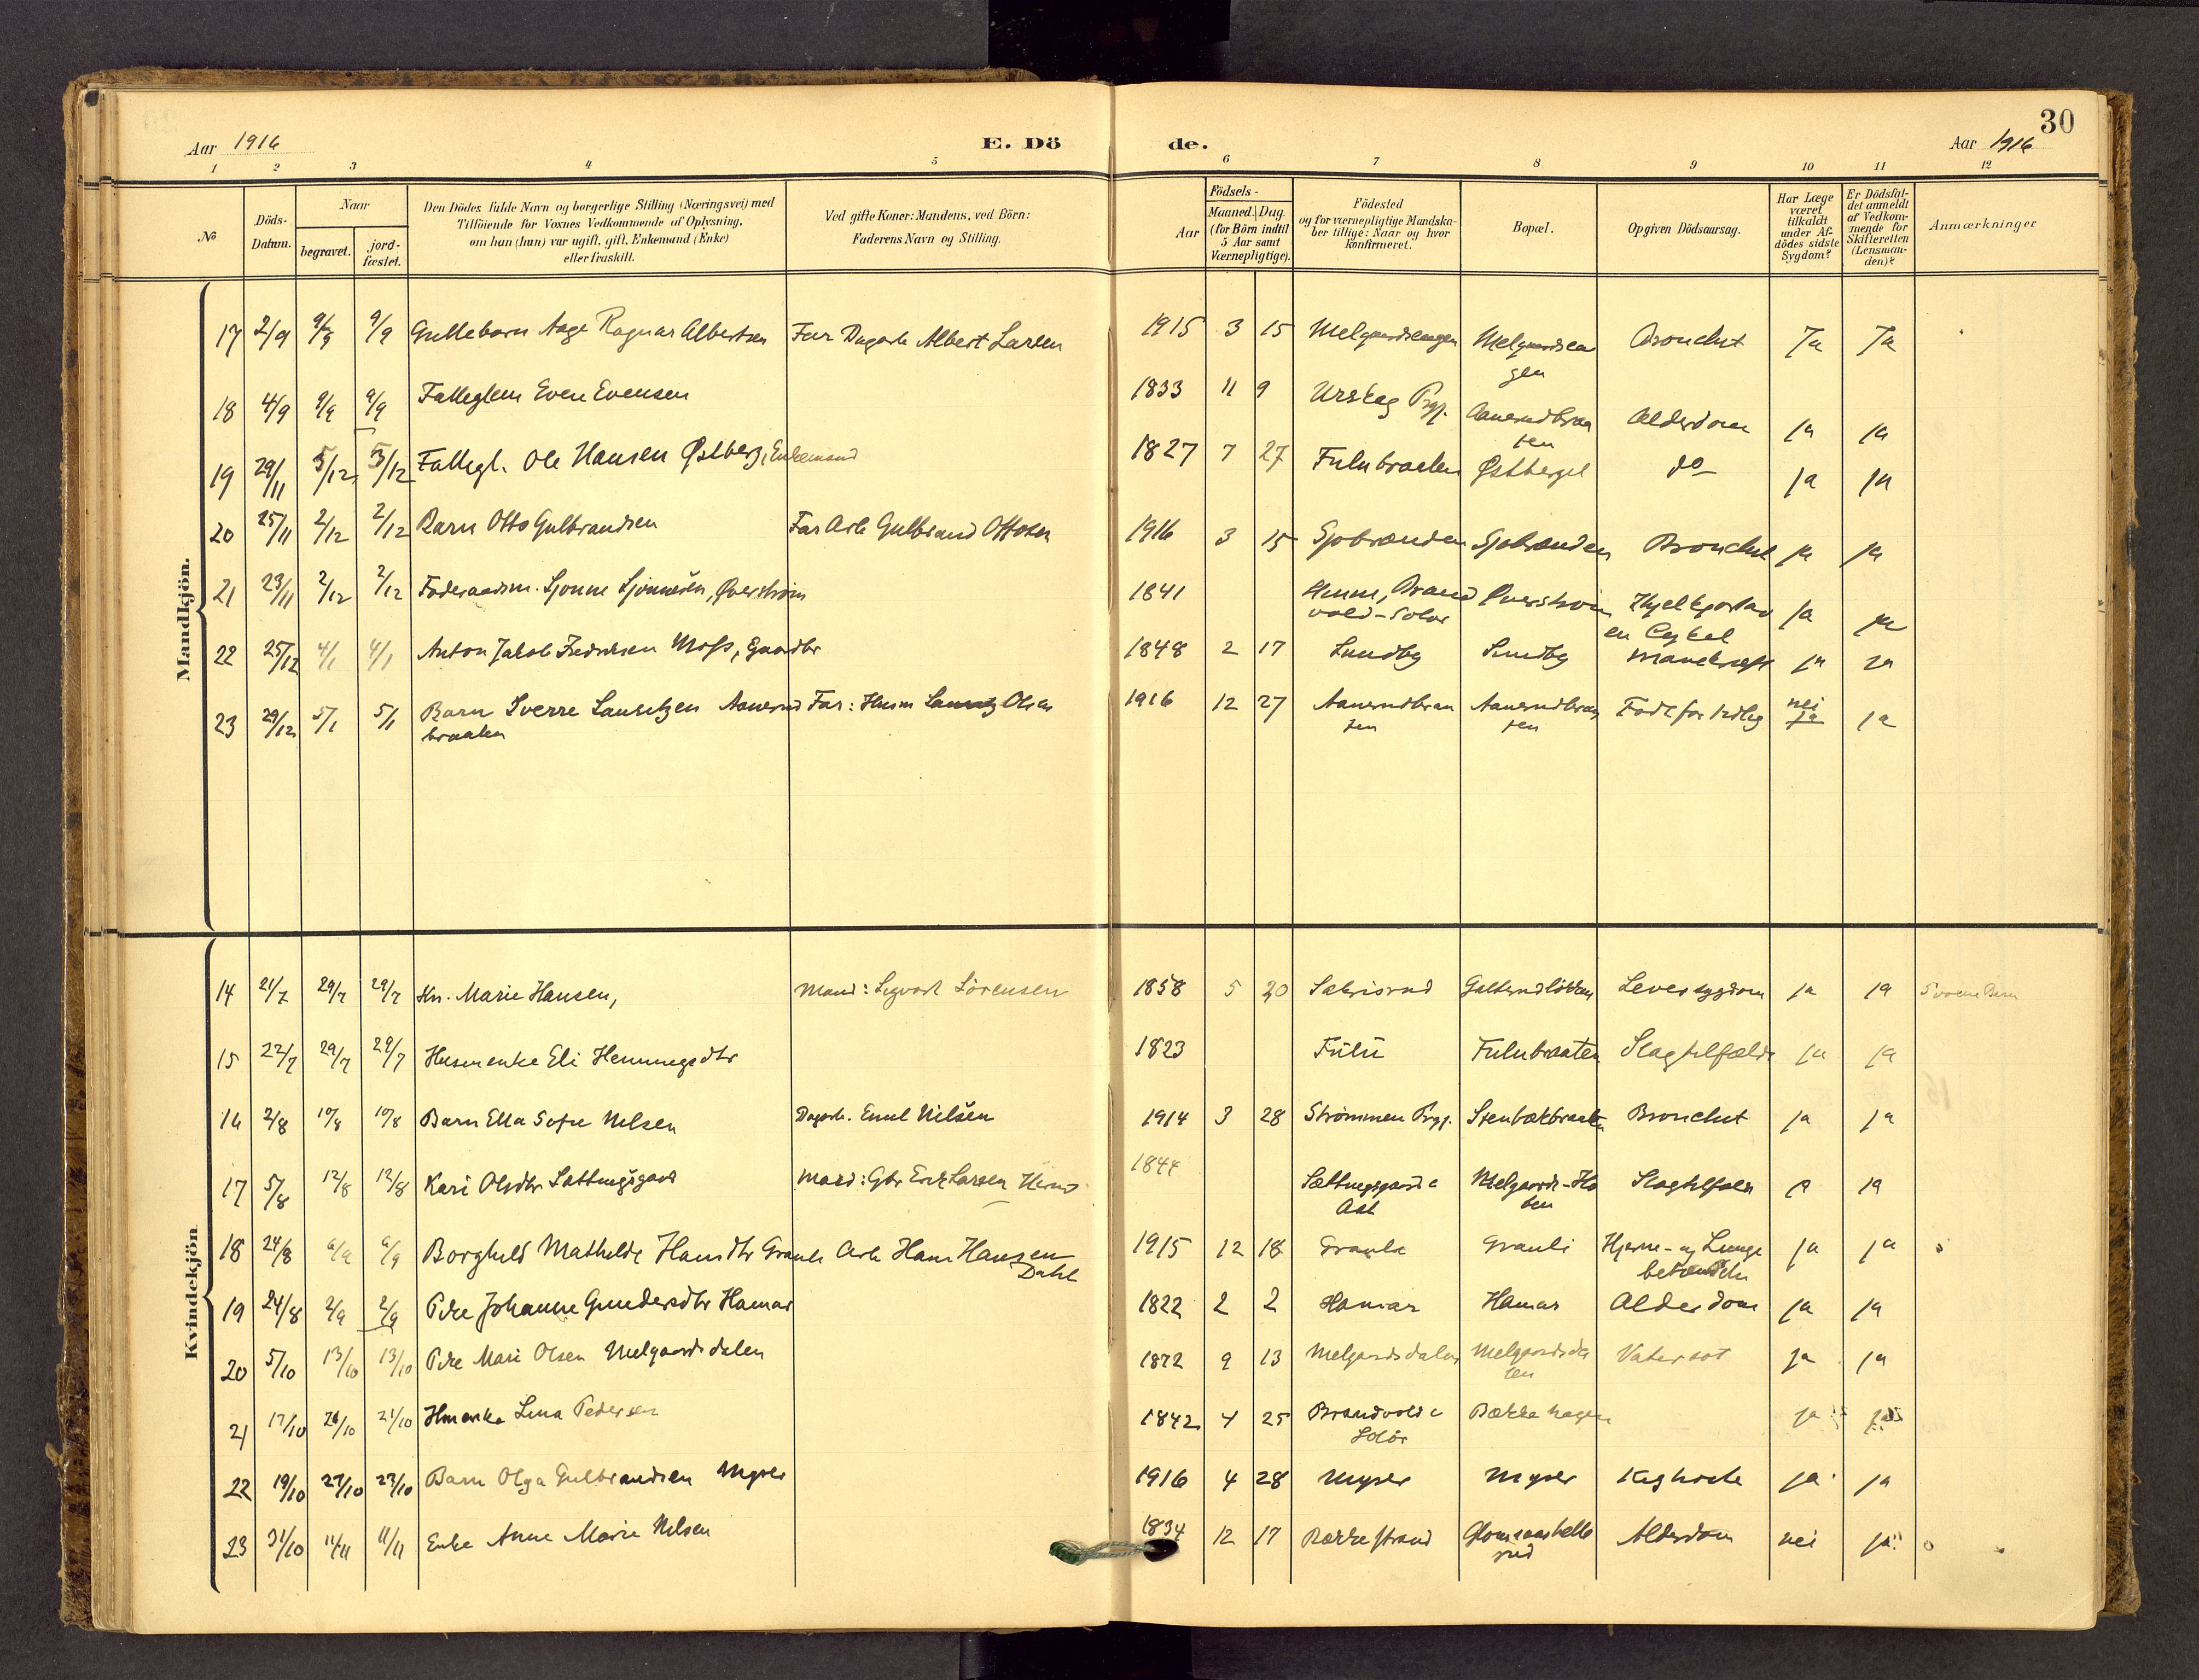 30
Aar 1916
E. Dö de.
Aar 1916
1 2 3 4 5 6 7 8 9 10 11 12
No
Döds-
Datum.
Naar
begravet.
jord-
fæstet.
Den Dödes fulde Navn og borgerlige Stilling (Næringsvei) med
Tilföiende for Voxnes Vedkommende af Oplysning.
om han (hun) var ugift, gift, Enkemand (Enke)
eller fraskilt.
Ved gifte Koner: Mandens, ved Börn:
Faderens Navn og Stilling.
Aar
Födsels-
Maaned. Dag.
(for Börn indtil
5 Aar samt
Værnepligtige).
Födested
og for værnepligtige Mandska-
ber tillige: Naar og hvor
konfirmeret.
Bopæl.
Opgiven Dödsaarsag.
Har Læge
været
tilkaldt
under Af-
dödes sidste
Sygdom?
Er Dödsfal-
det anmeldt
af Vedkom-
mende for
Skifteretten
(Lensman-
den)?
Anmærkninger
Mandkjön.
17 2/9 9/9 9/9 Guttebarn Aage Ragnar Albertsen Far Dagarb Albert Larsen 1915 3 15 Melgaardsengen Melgaardsen
gen Bronchit Ja Ja
18 4/9 9/9 9/9 Fatteglem Even Evensen 1833 11 9 Urskog Prgj. Aanerudbraa
ten Alderdom ja ja
19 29/11 5/12 5/12 Fattegl. Ole Hansen Østberg, Enkemand 1827 7 27 Fulubraaten Østberget do ja ja
20 25/11 2/12 2/12 Barn Otto Gulbrandsen Far Arb Gulbrand Ottosen 1916 3 15 Sjobrænden Sjobrænden Bronchit ja ja
21 23/11 2/12 2/12 Føderaadsm. Sjonne Sjonnesen, Qverstrøm 1841 Brand
vold-Solør Qverstrøm
en Cykel ja ja
22 25/12 4/1 4/1 Anton Jakob Fredriksen Moss, Gaardbr 1848 2 17 Lundby Lundby ja ja
23 29/12 5/1 5/1 Barn Sverre Lauritzen Aanerud
braaten Far: Husm Lauritz Olsen 1916 12 27 Aanerudbraa
ten Aanerudbraa
ten Født for tidlig nei
ja ja
Kvindekjön
14 21/7 29/7 29/7 Hu. Marie Hansen, Mand: Sigvart Sörensen 1858 5 20 Sakrisrud Galterudløkken Leversygdom ja ja
15 22/7 29/7 29/7 Husmenke Eli Henningsdtr 1823 Fulu Fulubraaten Slagtilfælde ja ja
16 2/8 10/8 10/8 Barn Ella Sofie Nilsen Dagarb. Emil Nilsen 1914 3 28 Strømmen Prgj. Stenbækbraaten Bronchit ja ja
17 5/8 12/8 12/8 Kari Olsdtr Sættingsgaard Mand: Gbr Erik Larsen 1844 Sættingsgaard
Melgaards-Ho
ben Slagtilfælde ja ja
18 24/8 6/9 6/9 Borghild Mathilde Hansdtr Granli Arb Hans Hansen
Dahl 1915 12 18 Granli Granli Hjerne- og Lunge
betændelse ja ja
19 24/8 2/9 2/9 Pike Johanne Gundersdtr Hamar 1822 2 2 Hamar Hamar Alderdom ja ja
20 5/10 13/10 13/10 Pike Mari Olsen Melgaardsdalen 1872 9 13 Melgaardsdalen Melgaardsda
len Vatersot ja ja
21 17/10 21/10 21/10 Hmenke Lina Pedersen 1842 4 25 Brandvold
Solör Bækkehagen ja ja
22 19/10 27/10 27/10 Barn Olga Gulbrandsen Myrer 1916 4 28 Myrer Myrer Kighoste ja ja
23 31/10 11/11 11/11 Enke Anne Marie Nilsen 1834 12 17 Rakkestrand Alderdom nei ja